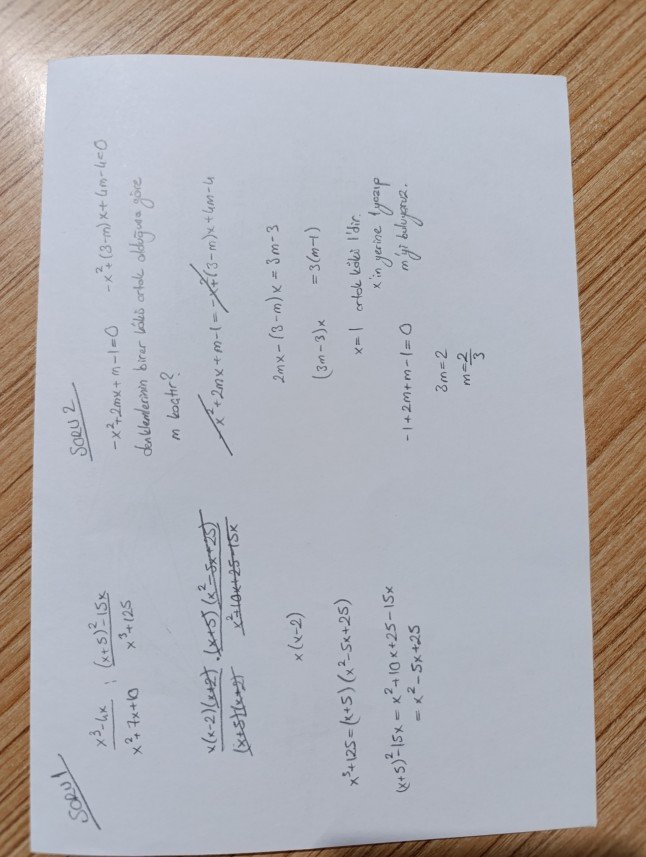 SORU 1
x³-4x / x²+7x+10 : (x+5)²-15x / x³+125
x(x-2)(x+2) / (x+5)(x+2) . (x+5)(x²-5x+25) / x²+10x+25-15x
x(x-2)
x³+125=(x+5)(x²-5x+25)
(x+5)²-15x = x²+10x+25-15x
= x²-5x+25
SORU 2
-x²+2mx+m-1=0 -x²+(3-m)x+4m-4=0
denklemlerinin birer kökü ortak olduğuna göre
m kaçtır?
-x²+2mx+m-1=-x²+(3-m)x+4m-4
2mx-(3-m)x=3m-3
(3m-3)x =3(m-1)
x=1 ortak kökü 1'dir.
x'in yerine 1 yazıp
m'yi buluyoruz.
-1+2m+m-1=0
3m=2
m=2/3